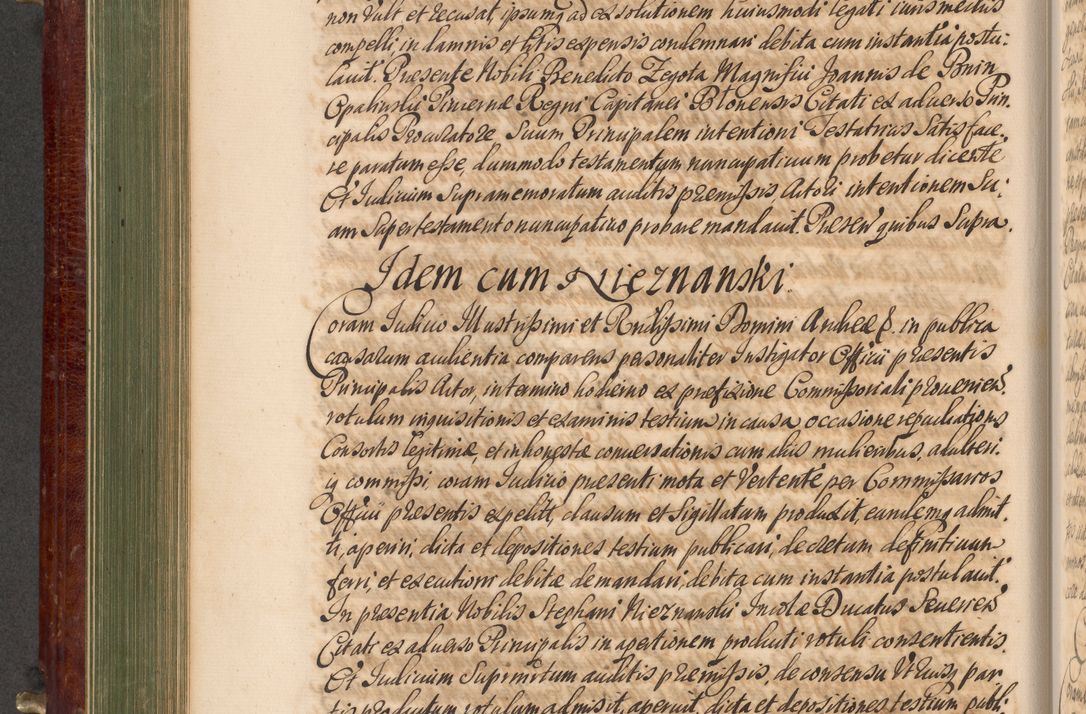 non vult et recusat, ipsumq ad exsolutionem huiusmodi legati iuris mediis
compelli, in damnis et litis expensis condemnari debita cum instantia postu:
lauit. Præsente Nobili Benedicto Zegota Magnifici Joannis de Bnin
Opalinski Pincernæ Regni Capitanei Blonensis Citati ex aduerso Prin,
cipalis Procuratore Suum Principalem intentioni Testatricis Satisface,
re paratum esse, dummodo testamentum nuncupatiuum probetur dicente
Et Iudicium Supramemoratum auditis præmissis, Actori intentionem Su:
am Super testamento nuncupatiuo probare mandauit. Presen quibus Supra.
Idem cum Nieznanski.
Coram Iudicio Illustrissimi et Rndissimi Domini Andreæ E. in publica
causarum audientia comparens personaliter Instigator Officii præsentis
Principalis Actor, in termino hodierno ex præfixione Commissoriali proueniens
rotulum inquisitionis et examinis testium, in causa occasione repudiationis
Consortis legitimæ, et inhonestæ conuersationis cum aliis mulieribus, adulteri,
iq commissi coram Iudicio præsenti mota et vertente per Commissarios
Officii præsentis expedit, clausum et Sigillatum produxit, eundemq admit,
ti, aperiri, dicta et depositiones testium publicari, decretum definitiuum
ferri, et executioni debitæ demandari, debita cum instantia postulauit.
In præsentia Nobilis Stephani Nieznanski Incolæ Ducatus Seuerien
Citati ex aduerso Principalis in apertionem producti rotuli consentientis.
Et Iudicium Supmentum auditis præmissis, de consensu Vtriusq par
tis productum rotulum admisit, aperuit, dicta et depositiones testium publi: